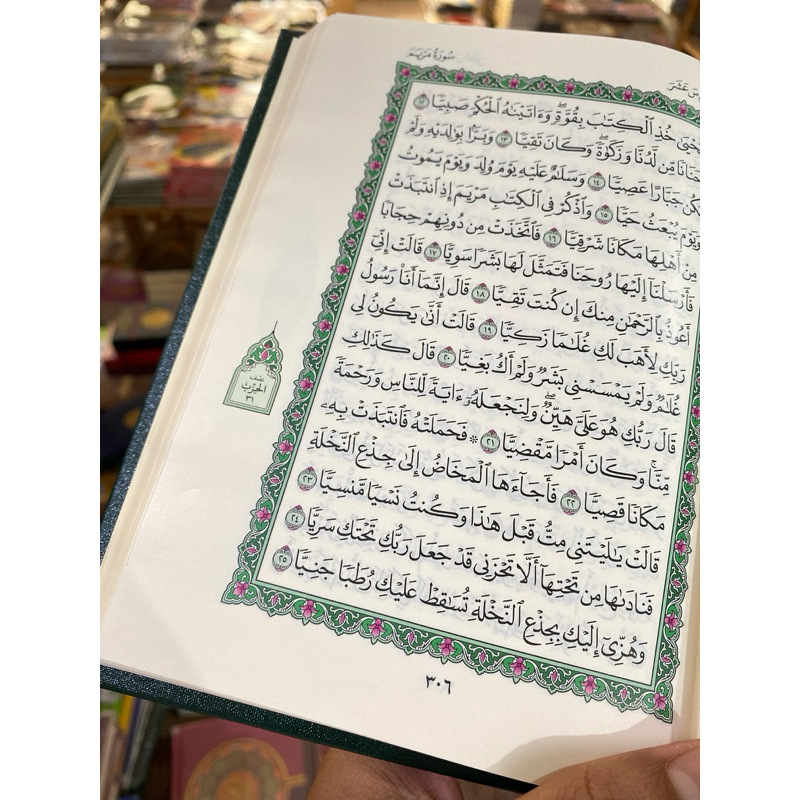 سُورَةُ مَرْيَمَ
عَشَرَ
خُذِ ٱلْكِتَٰبَ بِقُوَّةٍ ۖ وَءَاتَيْنَٰهُ ٱلْحُكْمَ صَبِيًّا ١٢
مِّن لَّدُنَّا وَزَكَوٰةً ۖ وَكَانَ تَقِيًّا ١٣ وَبَرًّۢا بِوَٰلِدَيْهِ وَلَمْ
جَبَّارًا عَصِيًّا ١٤ وَسَلَٰمٌ عَلَيْهِ يَوْمَ وُلِدَ وَيَوْمَ يَمُوتُ
وَيَوْمَ يُبْعَثُ حَيًّا ١٥ وَٱذْكُرْ فِى ٱلْكِتَٰبِ مَرْيَمَ إِذِ ٱنتَبَذَتْ
مِنْ أَهْلِهَا مَكَانًا شَرْقِيًّا ١٦ فَٱتَّخَذَتْ مِن دُونِهِمْ حِجَابًا
فَأَرْسَلْنَآ إِلَيْهَا رُوحَنَا فَتَمَثَّلَ لَهَا بَشَرًا سَوِيًّا ١٧ قَالَتْ إِنِّىٓ
أَعُوذُ بِٱلرَّحْمَٰنِ مِنكَ إِن كُنتَ تَقِيًّا ١٨ قَالَ إِنَّمَآ أَنَا۠ رَسُولُ
رَبِّكِ لِأَهَبَ لَكِ غُلَٰمًا زَكِيًّا ١٩ قَالَتْ أَنَّىٰ يَكُونُ لِى
غُلَٰمٌ وَلَمْ يَمْسَسْنِى بَشَرٌ وَلَمْ أَكُ بَغِيًّا ٢٠ قَالَ كَذَٰلِكِ
قَالَ رَبُّكِ هُوَ عَلَىَّ هَيِّنٌ ۖ وَلِنَجْعَلَهُۥٓ ءَايَةً لِّلنَّاسِ وَرَحْمَةً
مِّنَّا ۚ وَكَانَ أَمْرًا مَّقْضِيًّا ٢١ ۞ فَحَمَلَتْهُ فَٱنتَبَذَتْ بِهِۦ
مَكَانًا قَصِيًّا ٢٢ فَأَجَآءَهَا ٱلْمَخَاضُ إِلَىٰ جِذْعِ ٱلنَّخْلَةِ
قَالَتْ يَٰلَيْتَنِى مِتُّ قَبْلَ هَٰذَا وَكُنتُ نَسْيًا مَّنسِيًّا ٢٣
فَنَادَىٰهَا مِن تَحْتِهَآ أَلَّا تَحْزَنِى قَدْ جَعَلَ رَبُّكِ تَحْتَكِ سَرِيًّا ٢٤
وَهُزِّىٓ إِلَيْكِ بِجِذْعِ ٱلنَّخْلَةِ تُسَٰقِطْ عَلَيْكِ رُطَبًا جَنِيًّا ٢٥
نصف
الحزب
٣١
٣٠٦